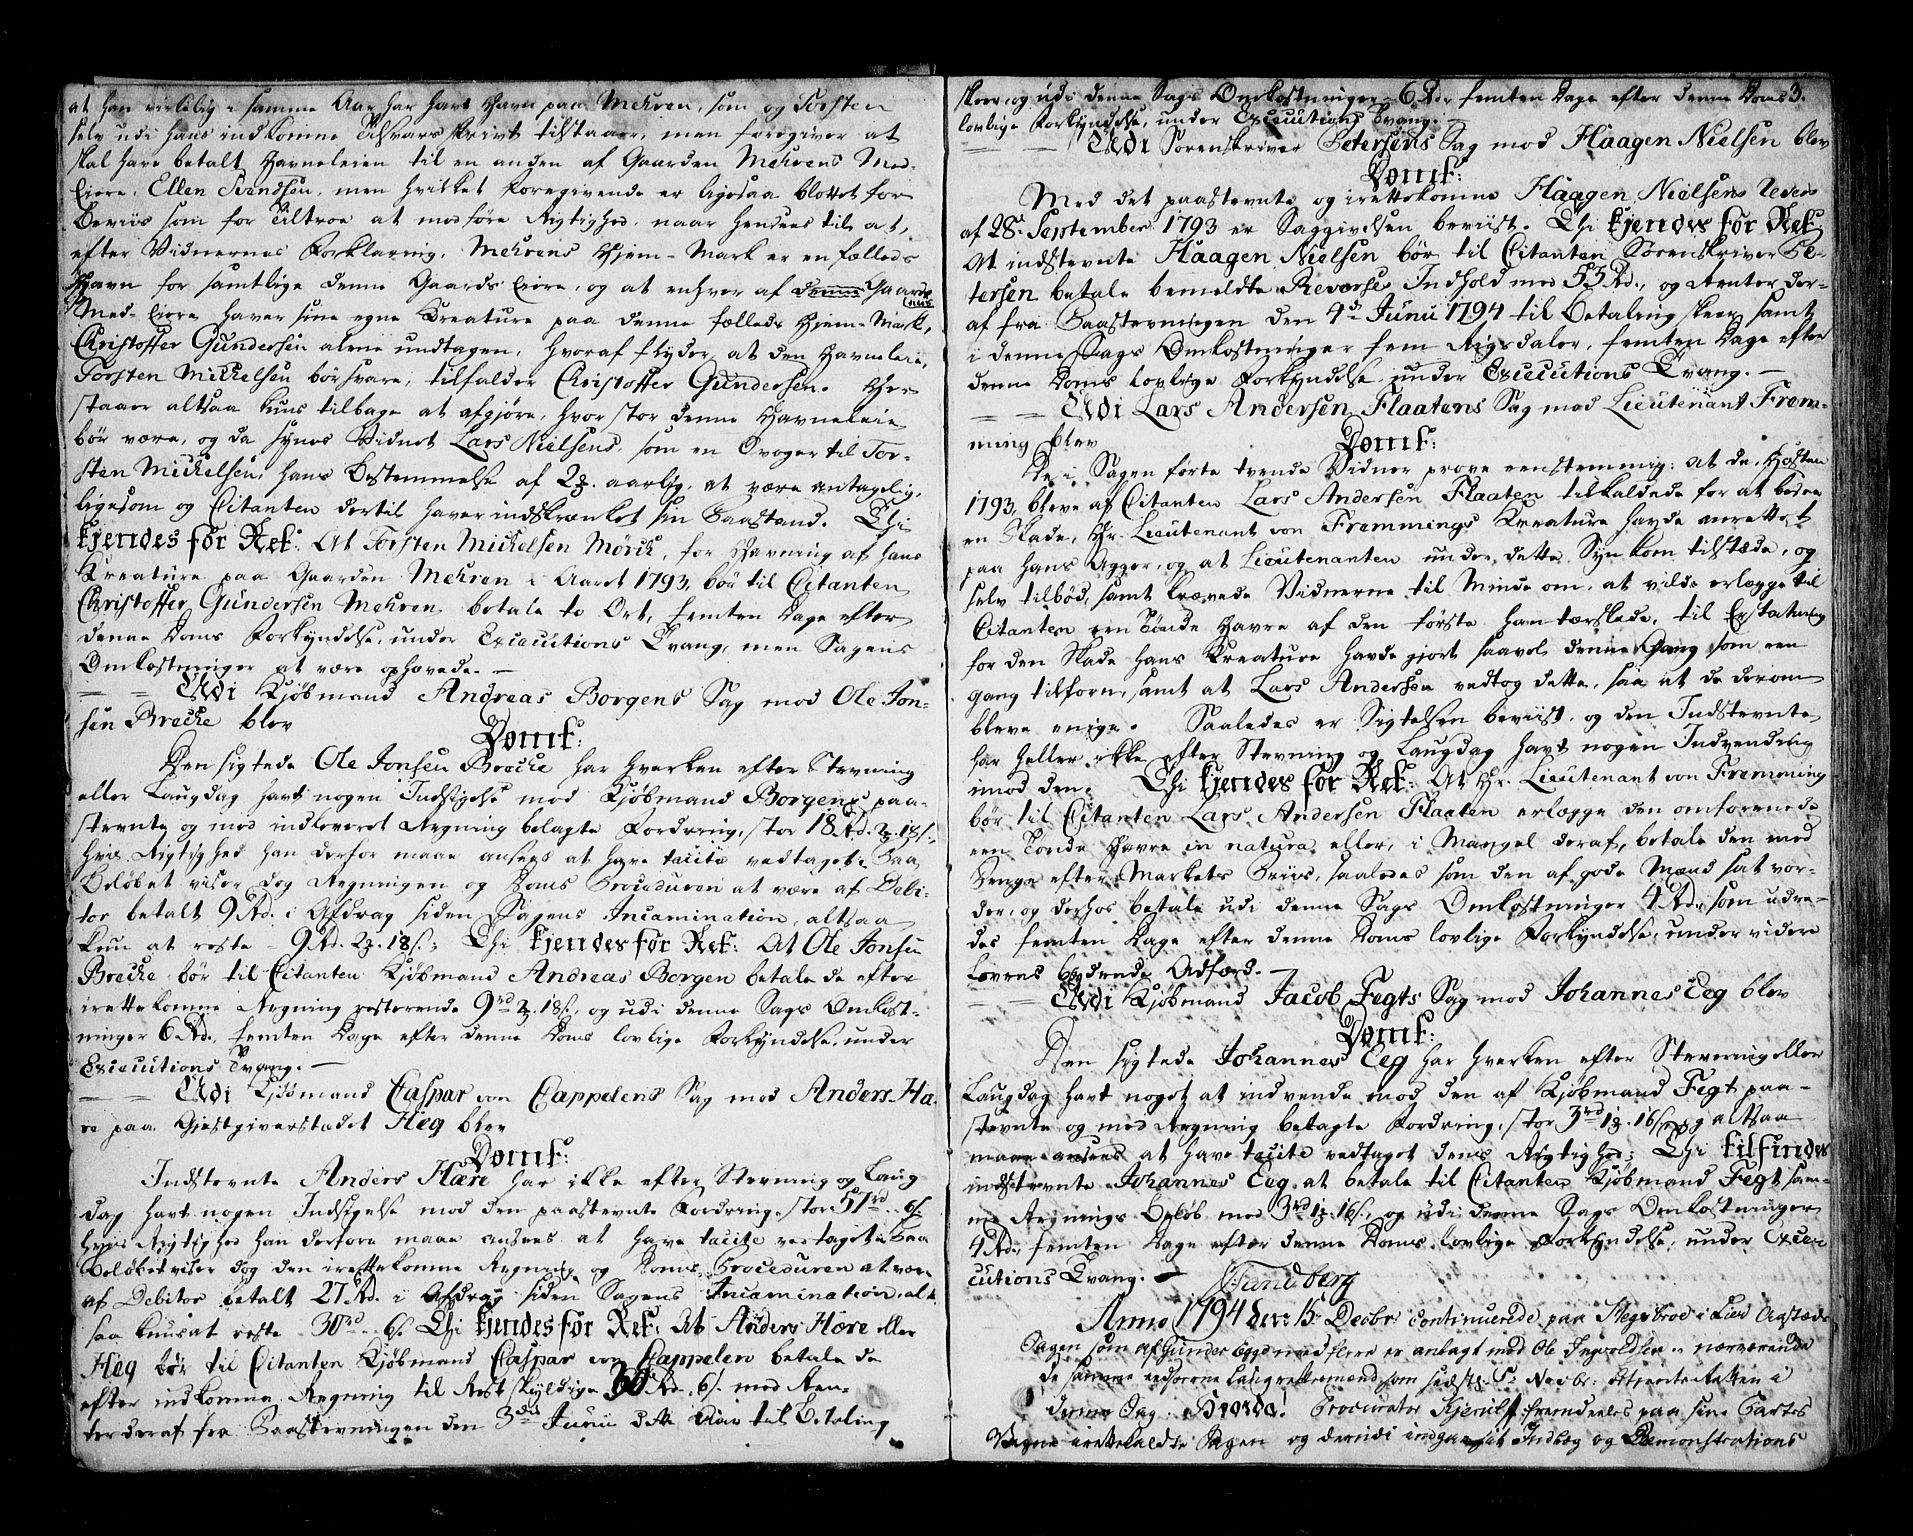 at han virkelig i samme Aar har havt Havn paa Mehren, som og Torsten
selv udi hans indkomne Tilsvars skrivt tilstaaer, men foregiver at
skal have betalt Havneleien til en anden af Gaarden Mehrens Med-
Eiere, Ellen Svendsen, men hvilket Foregivende er ligesaa blottet for
Beviis som for Tiltroe at medføre Rigtighed, naar hensees til at,
efter Vidnernes Forklaring, Mehrens Hjem-Mark er en fælleds
Havn for samtlige denne Gaards Eiere, og at enhver af denne Gaards
Med-Eiere haver sine egne Kreature paa denne fælleds Hjem-Mark,
Christoffer Gundersen alene undtagen, hvoraf flyder, at den Havneleie,
Torsten Mickelsen bør svare, tilfalder Christoffer Gundersen. Her
staaer altsaa kuns tilbage at afgjøre, hvor stor denne Havneleie
bør være, og da synes Vidnet Lars Nielsens, som en Svoger til Tor-
sten Mickelsen, hans Bestemmelse af 2 aarlig, at være antagelig,
ligesom og Citanten dertil haver indskrænket sin Paastand. Thi
kjendes for Ret: At Torsten Mickelsen Mörch, for Havning af hans
Kreature paa Gaarden Mehren i Aaret 1793, bør til Citanten
Christoffer Gundersen Mehren betale to Ort, femten Dage efter
denne Doms Forkyndelse, under Executions Tvang, men Sagens
Omkostninger at være ophævede. —
Udi Kjøbmand Andreas Borgens Sag mod Ole Jon-
sen Brecke blev
Dom:
Den sigtede Ole Jonsen Brecke har hverken efter Stevning
eller Laugdag havt nogen Indsigelse mod Kjøbmand Borgens paa-
stevnte og med indleveret Regning belagte Fordring, stor 18 Rd. 2 . 18 s.
hvis Rigtighed han derfor maae ansees at have tacite vedtaget. Paa
Beløbet viser dog Regningen og Doms Proceduren at være af Debi-
tor betalt 9 Rd. i Afdrag siden Sagens Incamination, altsaa
kun at reste – 9 Rd. 2 . 18 s.; Thi kjendes for Ret: At Ole Jonsen
Brecke bør til Citanten Kjøbmand Andreas Borgen betale de efter
irettekomne Regning resterende 9 rd 2 . 18 s. og udi denne Sags Omkost-
ninger 6 Rd. femten Dage efter denne Doms lovlige Forkyndelse, under
Executions Tvang. —
Udi Kjøbmand Caspar von Cappelens Sag mod Anders Hæ-
re paa Giestgiverstædet Heg blev
Dom:
Indstevnte Anders Hære har ikke efter Stevning og Laug
dag havt nogen Indsigelse mod den paastevnte Fordring, stor 57 rd. 6 s.
hvis Rigtighed han derfore maae ansees at have tacite vedtaget. Paa
Beløbet viser dog den irettekomne Regning og Doms Proceduren at være
af Debitor betalt 27 Rd. i Afdrag siden Sagens Incamination, alt-
saa kuns at reste 30 rd. 6 s. Thi kjendes for Ret: At Anders Hære eller
Heg bør til Citanten Kjøbmand Caspar von Cappelen betale de
efter indkomne Regning til Rest skyldige 30 Rd. 6 s. med Ren-
ter deraf fra Paastevningen den 3 die Junii dette Aar til Betaling
skeer, og udi denne Sags Omkostninger 6 Rd. femten Dage efter denne Doms 3.
lovlige Forkyndelse, under Executions Tvang. —
Udi Sorenskriver Petersens Sag mod Haagen Nielsen blev
Dom:
Med det paastevnte og irettekomne Haagen Nielsens Revers
af 28 September 1793 er Saggivelsen beviist. Thi kjendes for Ret:
At indstevnte Haagen Nielsen bør til Citanten Sorenskriver Pe-
tersen betale bemeldte Reverses Indhold med 53 Rd., og Renter der-
af fra Paastevningen den 4 de Junii 1794 til Betaling skeer, samt
i denne Sags Omkostninger fem Rigsdaler, femten Dage efter
denne Doms lovlige Forkyndelse under Executions Tvang. —
Udi Lars Andersen Flaatens Sag mod Lieutenant Frem-
ming blev
Dom:
De i Sagen førte tvende Vidner prove eenstemmig: at de, Høsten
1793, bleve af Citanten Lars Andersen Flaaten tilkaldede for at besee
en Skade, Hr. Lieutenant von Fremmings Kreature havde anrettet
paa hans Agger, og at Lieutenanten under dette Syn kom tilstæde, og
selv tilbød, samt krævede Vidnerne til Minde om, at vilde erlægge til
Citanten een Tønde Havre af den første han tærskede, til Erstatning
for den Skade hans Kreature havde gjort saavel denne Gang som een
gang tilforn, samt at Lars Andersen vedtog dette, saa at de derom
bleve enige. Saaledes er Sigtelsen beviist, og den Indstevnte
har heller ikke efter Stevning og Laugdag havt nogen Indvending
imod den. Thi kjendes for Ret: At Hr. Lieutenant von Fremming
bør til Citanten Lars Andersen Flaaten erlægge den omforenede
een Tønde Havre in natura eller, i Mangel deraf, betale den med
Penge efter Markets Priis, saaledes som den af gode Mænd sat vor-
der, og derhos betale udi denne Sags Omkostninger 4 Rd. som udre-
des femten Dage efter denne Doms lovlige Forkyndelse, under videre
Lovens bydende Adfærd. —
Udi Kjøbmand Jacob Fegts Sag mod Johannes Eeg blev
Dom:
Den sigtede Johannes Eeg har hverken efter Stevning eller
Laugdag havt noget at indvende mod den af Kjøbmand Fegt paa-
stevnte og med Regning belagte Fordring, stor 3 rd 1 . 16 s. og altsaa
maae ansees at have tacite vedtaget dens Rigtighed; Thi tilfindes
indstevnte Johannes Eeg at betale til Citanten Kjøbmand Fegt sam-
me Regnings Beløb med 3 rd 1 . 16 s. og udi denne Sags Omkostninger
4 Rd. femten Dage efter denne Doms lovlige Forkyndelse, under Exe-
cutions Tvang. —
Anno 1794 den 15 Decbr. continuerede paa Stegsbroe i Lier Aastæds
Sagen som af Gunder Egge med flere er anlagt mod Ole Ingvoldsen nærværende
de samme eedsorne Laugrettemænd som sidste 5 Novbr.
denne Sag. Hvorda! Procurator Kjerulf fremdeeles paa sine Parters
Vegne irettekaldte Sagen og derudi indgav sit Indlæg og Demonstrations